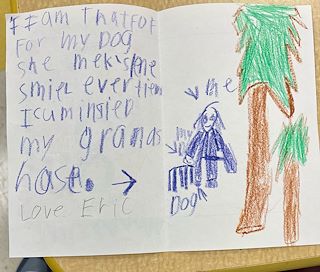 I am thatfot
For my Dog
she mek's me
smiel ever tiem
I cumintled
my grands
hase. →
Love Eric
me
my
Dog